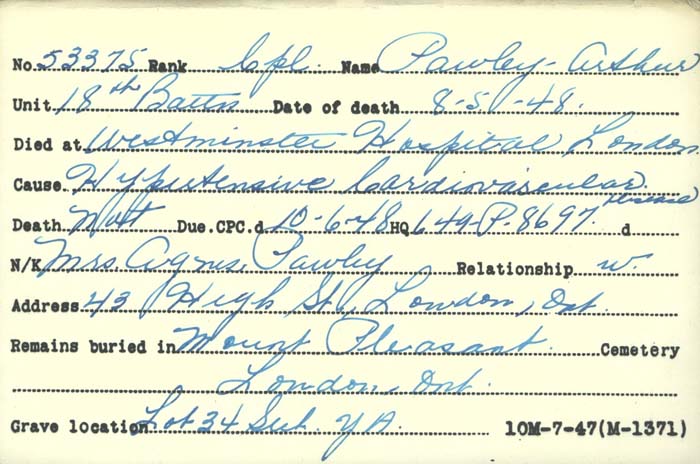 No. 53375 Rank Cpl. Name Pawley- Arthur
Unit 18th Battn Date of death 8-5-48.
Died at Westminster Hospital London
Cause Hypertensive Cardiovascular disease
Death Not Due. CPC.d 10-6-48 HQ 649-P-8697. d
N/K Mrs. Agnes Pawley Relationship w.
Address 43 High St., London, Ont.
Remains buried in Mount Pleasant Cemetery
London, Ont.
Grave location Lot 34 Sect. YA. 10M-7-47(M-1371)